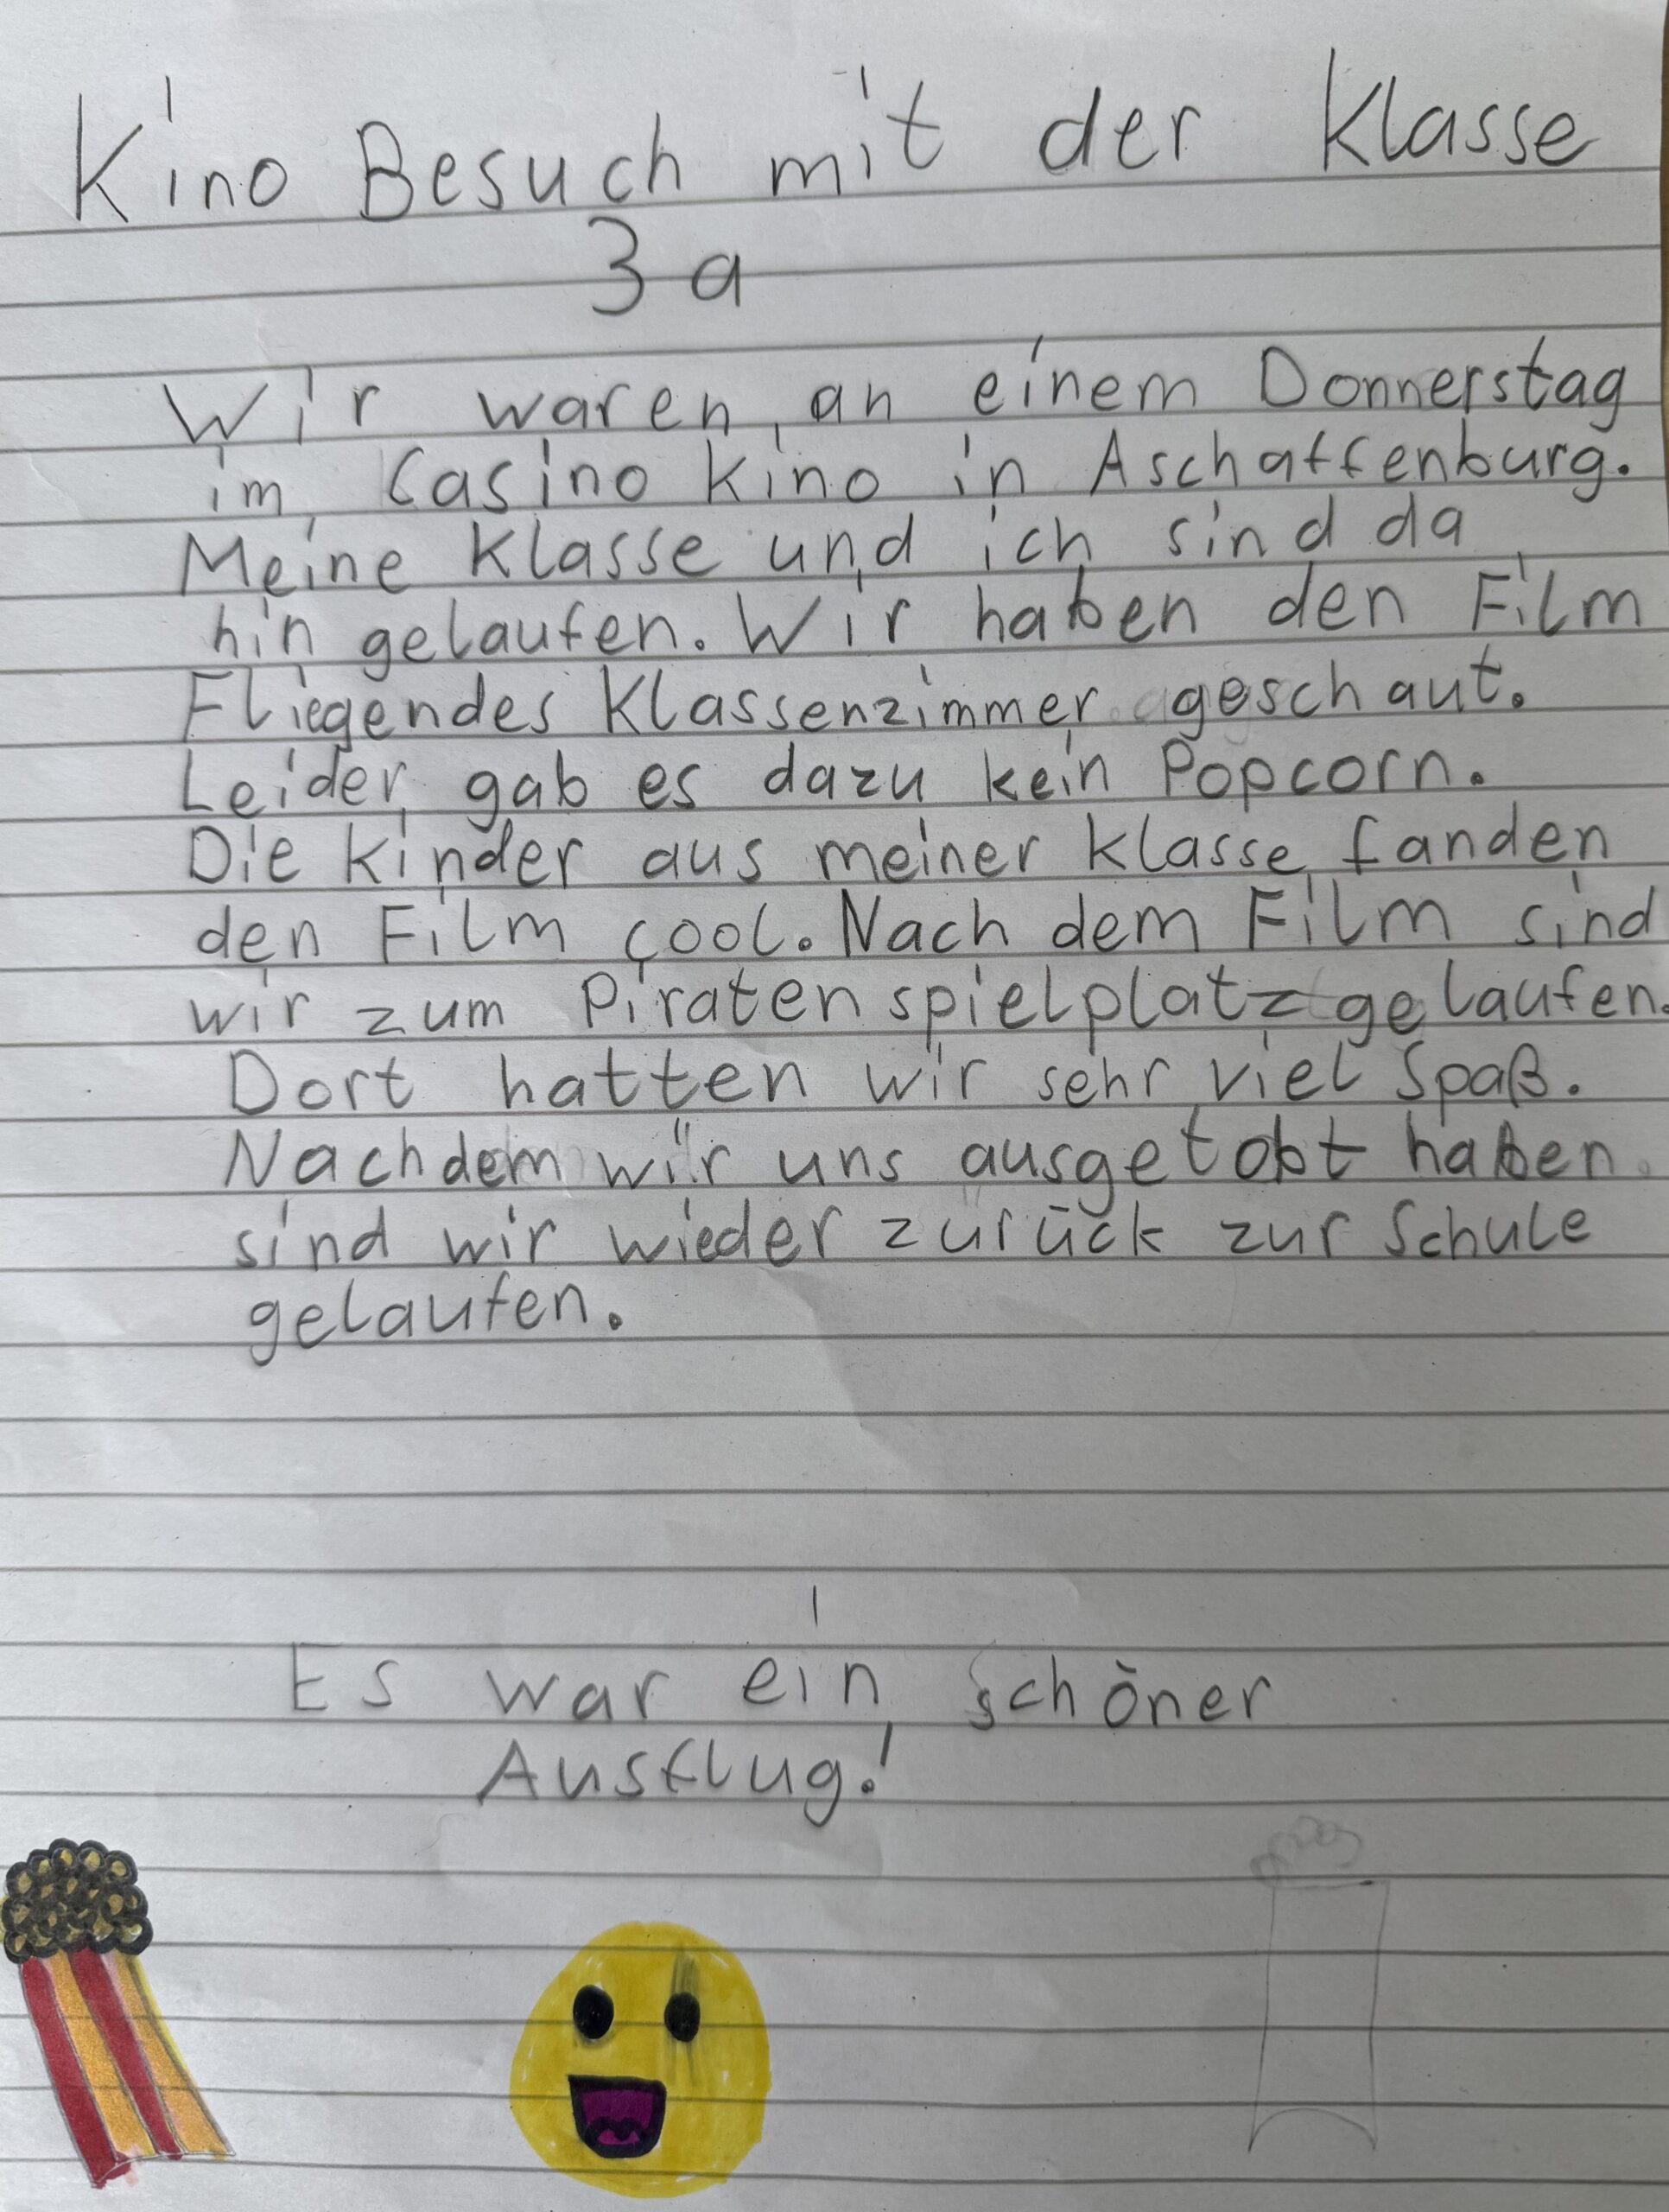 Kino Besuch mit der Klasse
3a
Wir waren an einem Donnerstag
im Casino kino in Aschaffenburg.
Meine Klasse und ich sind da
hin gelaufen. Wir haben den Film
Fliegendes Klassenzimmer geschaut.
Leider gab es dazu kein Popcorn.
Die Kinder aus meiner Klasse fanden
den Film cool. Nach dem Film sind
wir zum Piratenspielplatz gelaufen.
Dort hatten wir sehr viel Spaß.
Nachdem wir uns ausgetobt haben
sind wir wieder zurück zur Schule
gelaufen.
Es war ein schöner
Ausflug!